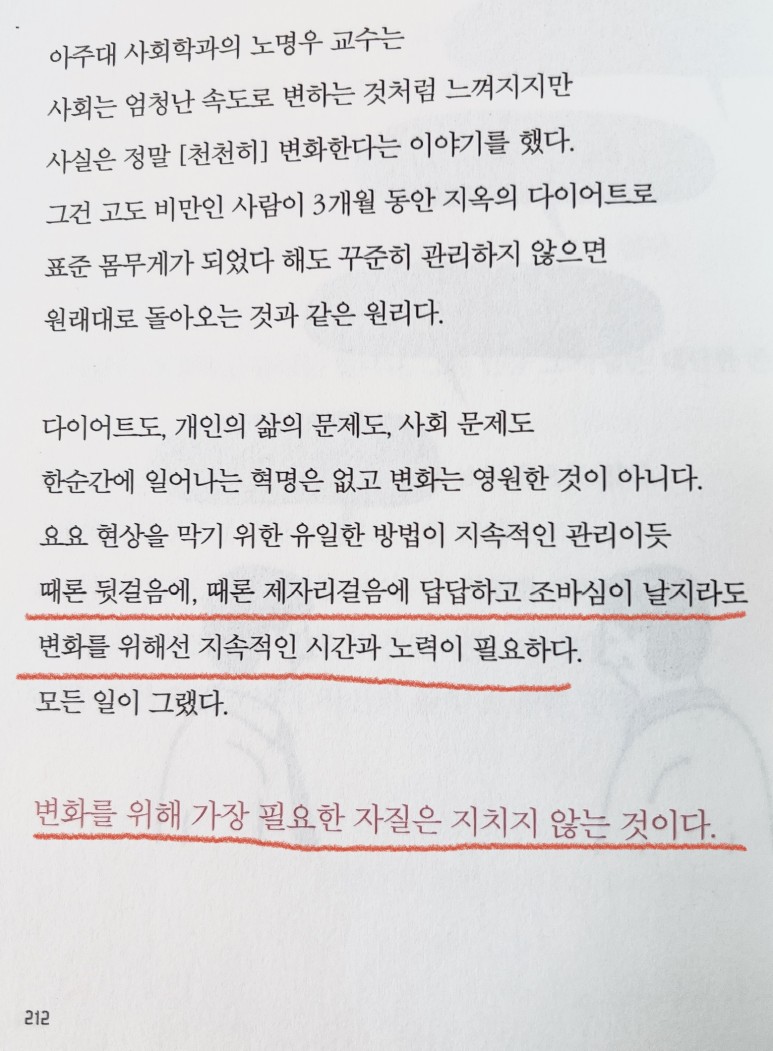 아주대 사회학과의 노명우 교수는
사회는 엄청난 속도로 변하는 것처럼 느껴지지만
사실은 정말 [천천히] 변화한다는 이야기를 했다.
그건 고도 비만인 사람이 3개월 동안 지옥의 다이어트로
표준 몸무게가 되었다 해도 꾸준히 관리하지 않으면
원래대로 돌아오는 것과 같은 원리다.
다이어트도, 개인의 삶의 문제도, 사회 문제도
한순간에 일어나는 혁명은 없고 변화는 영원한 것이 아니다.
요요 현상을 막기 위한 유일한 방법이 지속적인 관리이듯
때론 뒷걸음에, 때론 제자리걸음에 답답하고 조바심이 날지라도
변화를 위해선 지속적인 시간과 노력이 필요하다.
모든 일이 그랬다.
변화를 위해 가장 필요한 자질은 지치지 않는 것이다.
212